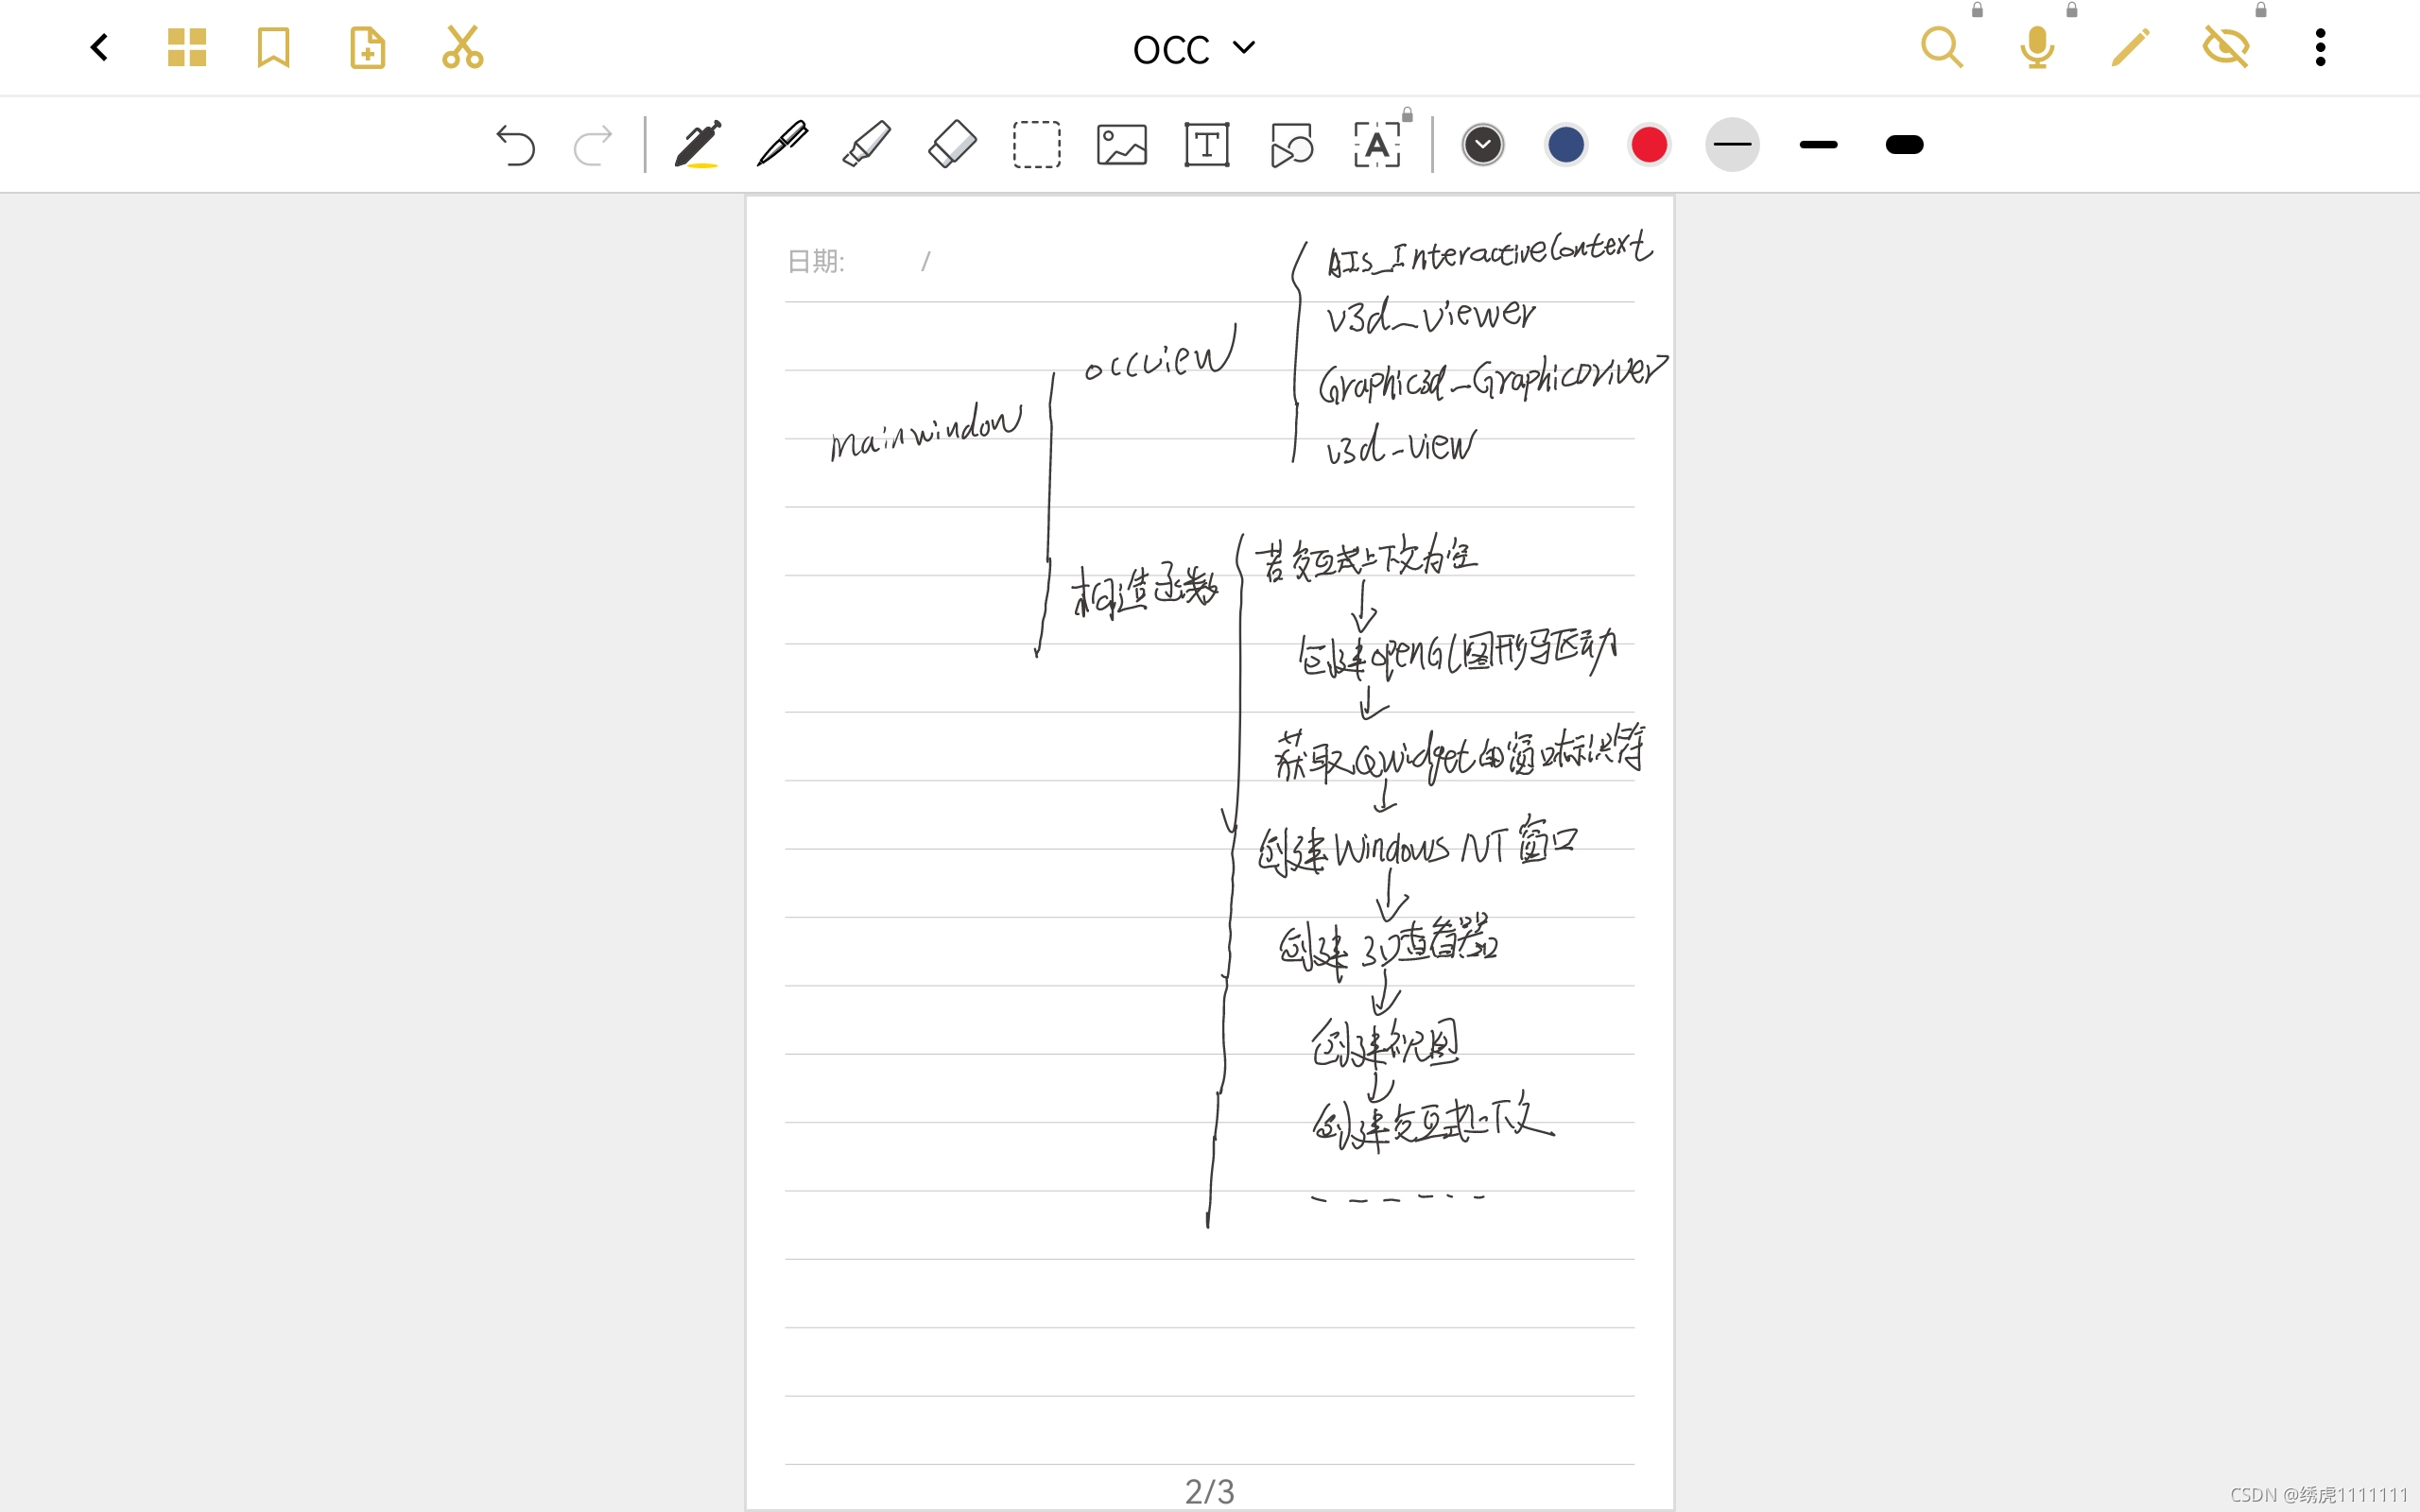 OCC
日期: /
AIS_InteractiveContext
v3d_viewer
occview
Graphic3d_GraphicDriver
mainwindow
v3d_view
若交互式上下文为空
构造函数
创建openGl图形驱动
获取Qwidget的窗口标识符
创建Windows NT窗口
创建3D查看器
创建视图
创建交互式上下文
2/3
CSDN @绣虎1111111